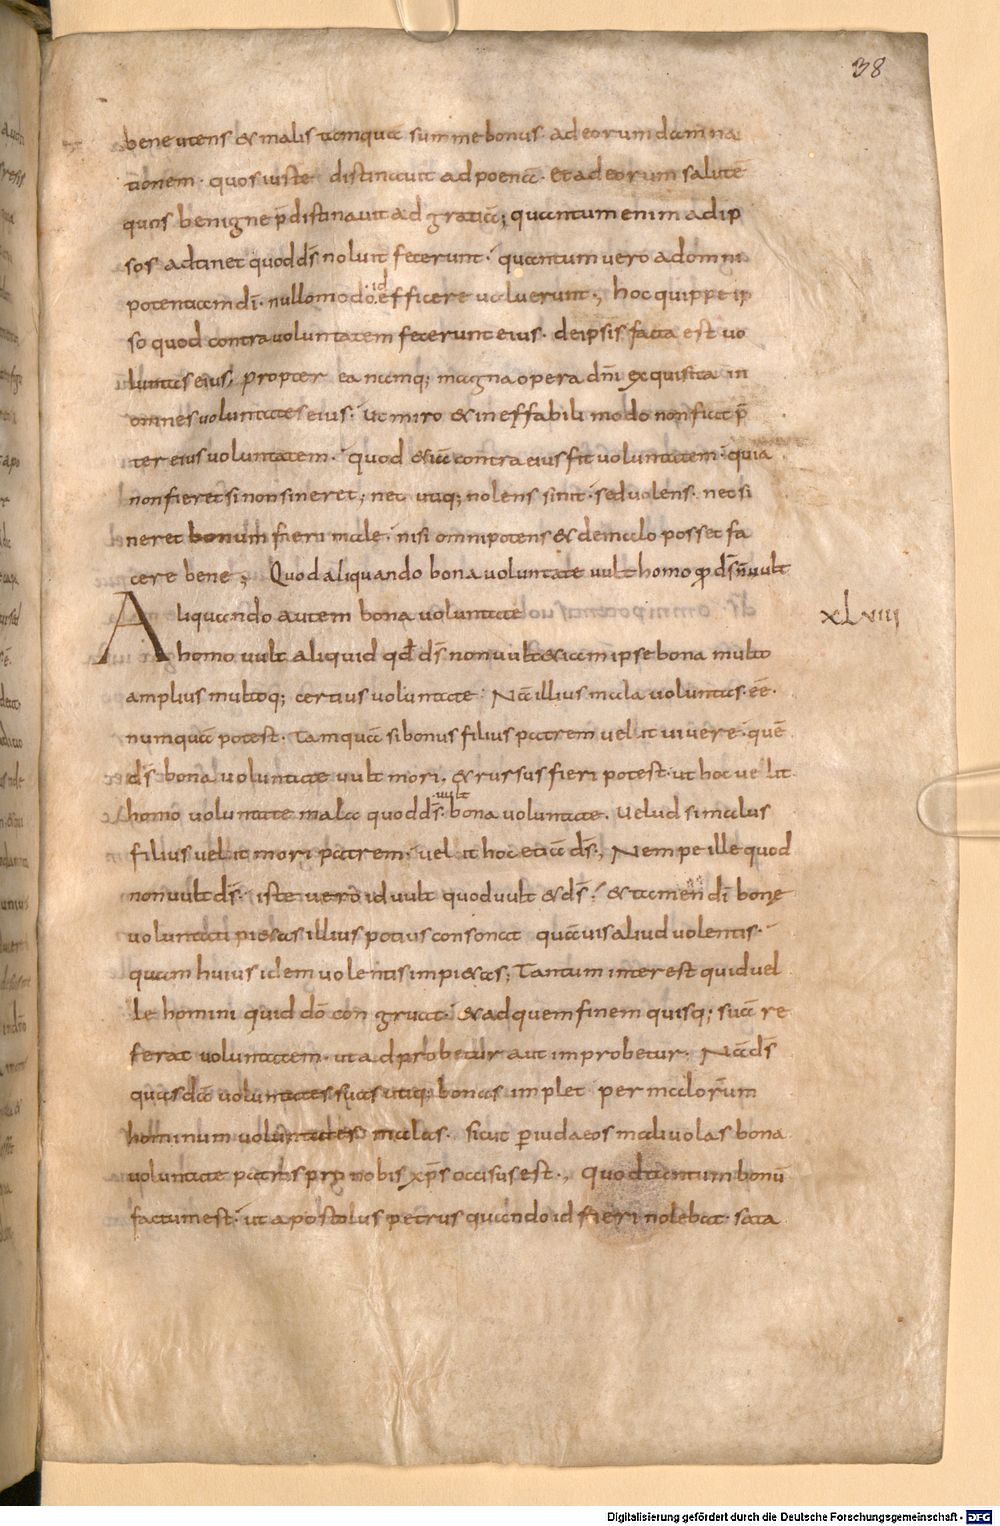 38
bene utens & malis tamquā summe bonus · ad eorum damna
tionem · quos iuste distinauit ad poenā · Et ad eorum salutē
quos benigne p̄distinauit ad gratiā; quantum enim ad ip
sos adtinet quod d̄s noluit fecerunt · quantum uero ad omni
potentiam dī · nullo modo id efficere ualuerunt ·, hoc quippe ip
so quod contra uoluntatem fecerunt eius · de ipsis facta est uo
luntas eius; propter ea namq; magna opera dn̄i exquisita in
omnes uoluntates eius · Ut miro & ineffabili modo non fiat p̄
ter eius uoluntatem · quod &iā contra eius fit uoluntatem · quia
non fieret si non sineret; nec utiq; nolens sinit · sed uolens · nec si
neret bonum fieri male · nisi omnipotens & de malo posset fa
cere bene ; Quod aliquando bona uoluntate uult homo qđ d̄s ñ uult
Aliquando autem bona uoluntate
xlviii
homo uult aliquid qđ d̄s non uult &iam ipse bona multo
amplius multoq; certius uoluntate · Nā illius mala uoluntas · eē ·
numquā potest · Tamquā si bonus filius patrem uelit uiuere · quē
d̄s bona uoluntate uult mori · & rursus fieri potest · ut hoc uelit
homo uoluntate mala quod d̄s · uult bona uoluntate · Uelud si malus
filius uelit mori patrem · uelit hoc etiā d̄s ·, Nempe ille quod
non uult d̄s · iste uero id uult quod uult & d̄s · & tamen dī bonę
uoluntati pi&as illius potius consonat quāuis aliud uolentis ·
quam huius idem uolentis impi&as; Tantum interest quid uel
le homini quid dō congruat · & ad quem finem quisq; suā re
ferat uoluntatem · ut ad probetur aut improbetur · Nā d̄s
quasdā uoluntates suas utiq; bonas implet per malorum
hominum uoluntates malas · sicut p iudaeos maliuolas bona
uoluntate patris pro nobis xp̄s occisus est ·, quod tantum bonū
factum est · ut apostolus petrus quando id fieri nolebat · sata
Digitalisierung gefördert durch die Deutsche Forschungsgemeinschaft - DFG